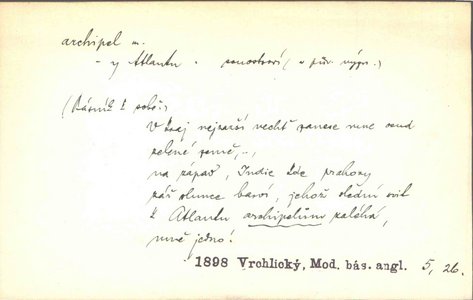 archipel m.
- y Atlantu - souostroví (v pův. význ.)
(Básník k sobě:)
V kraj nejzazší nechť zanese mne osud
zelené země, -,
na západ, Indie kde prahory
zář slunce barví, jehož svit
k Atlantu archipelům zaléhá,
mně jedno!
1898 Vrchlický, Mod. bás. angl. 5, 26.